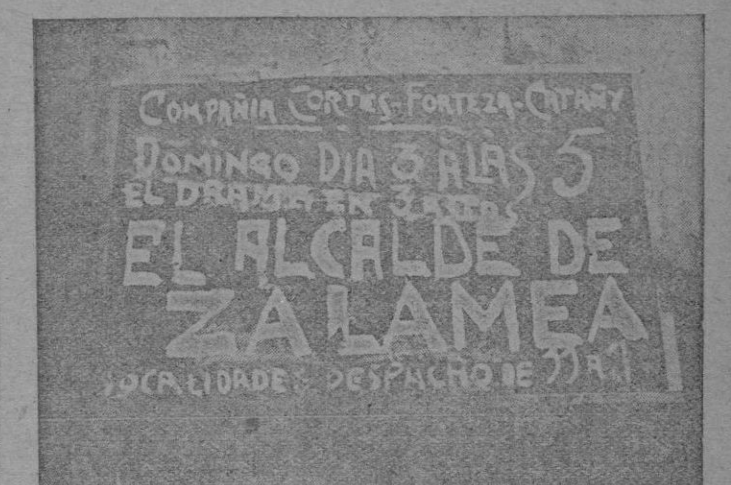 COMPAÑIA CORTÉS-FORTEZA-CATAÑY
DOMINGO DIA 3 A LAS 5
EL DRAMA EN 3 ACTOS
EL ALCALDE DE
ZALAMEA
LOCALIDADES DESPACHO DE 11 A 1